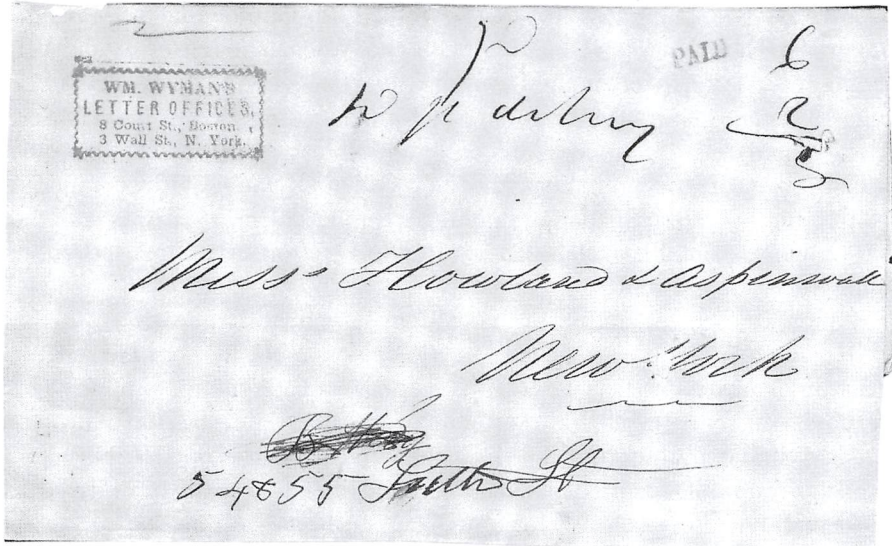 WM. WYMAN'S
LETTER OFFICES,
8 Court St., Boston,
3 Wall St., N. York.
PAID
6
2
Mess^s Howland & Aspinwall
New York
54 & 55 South St